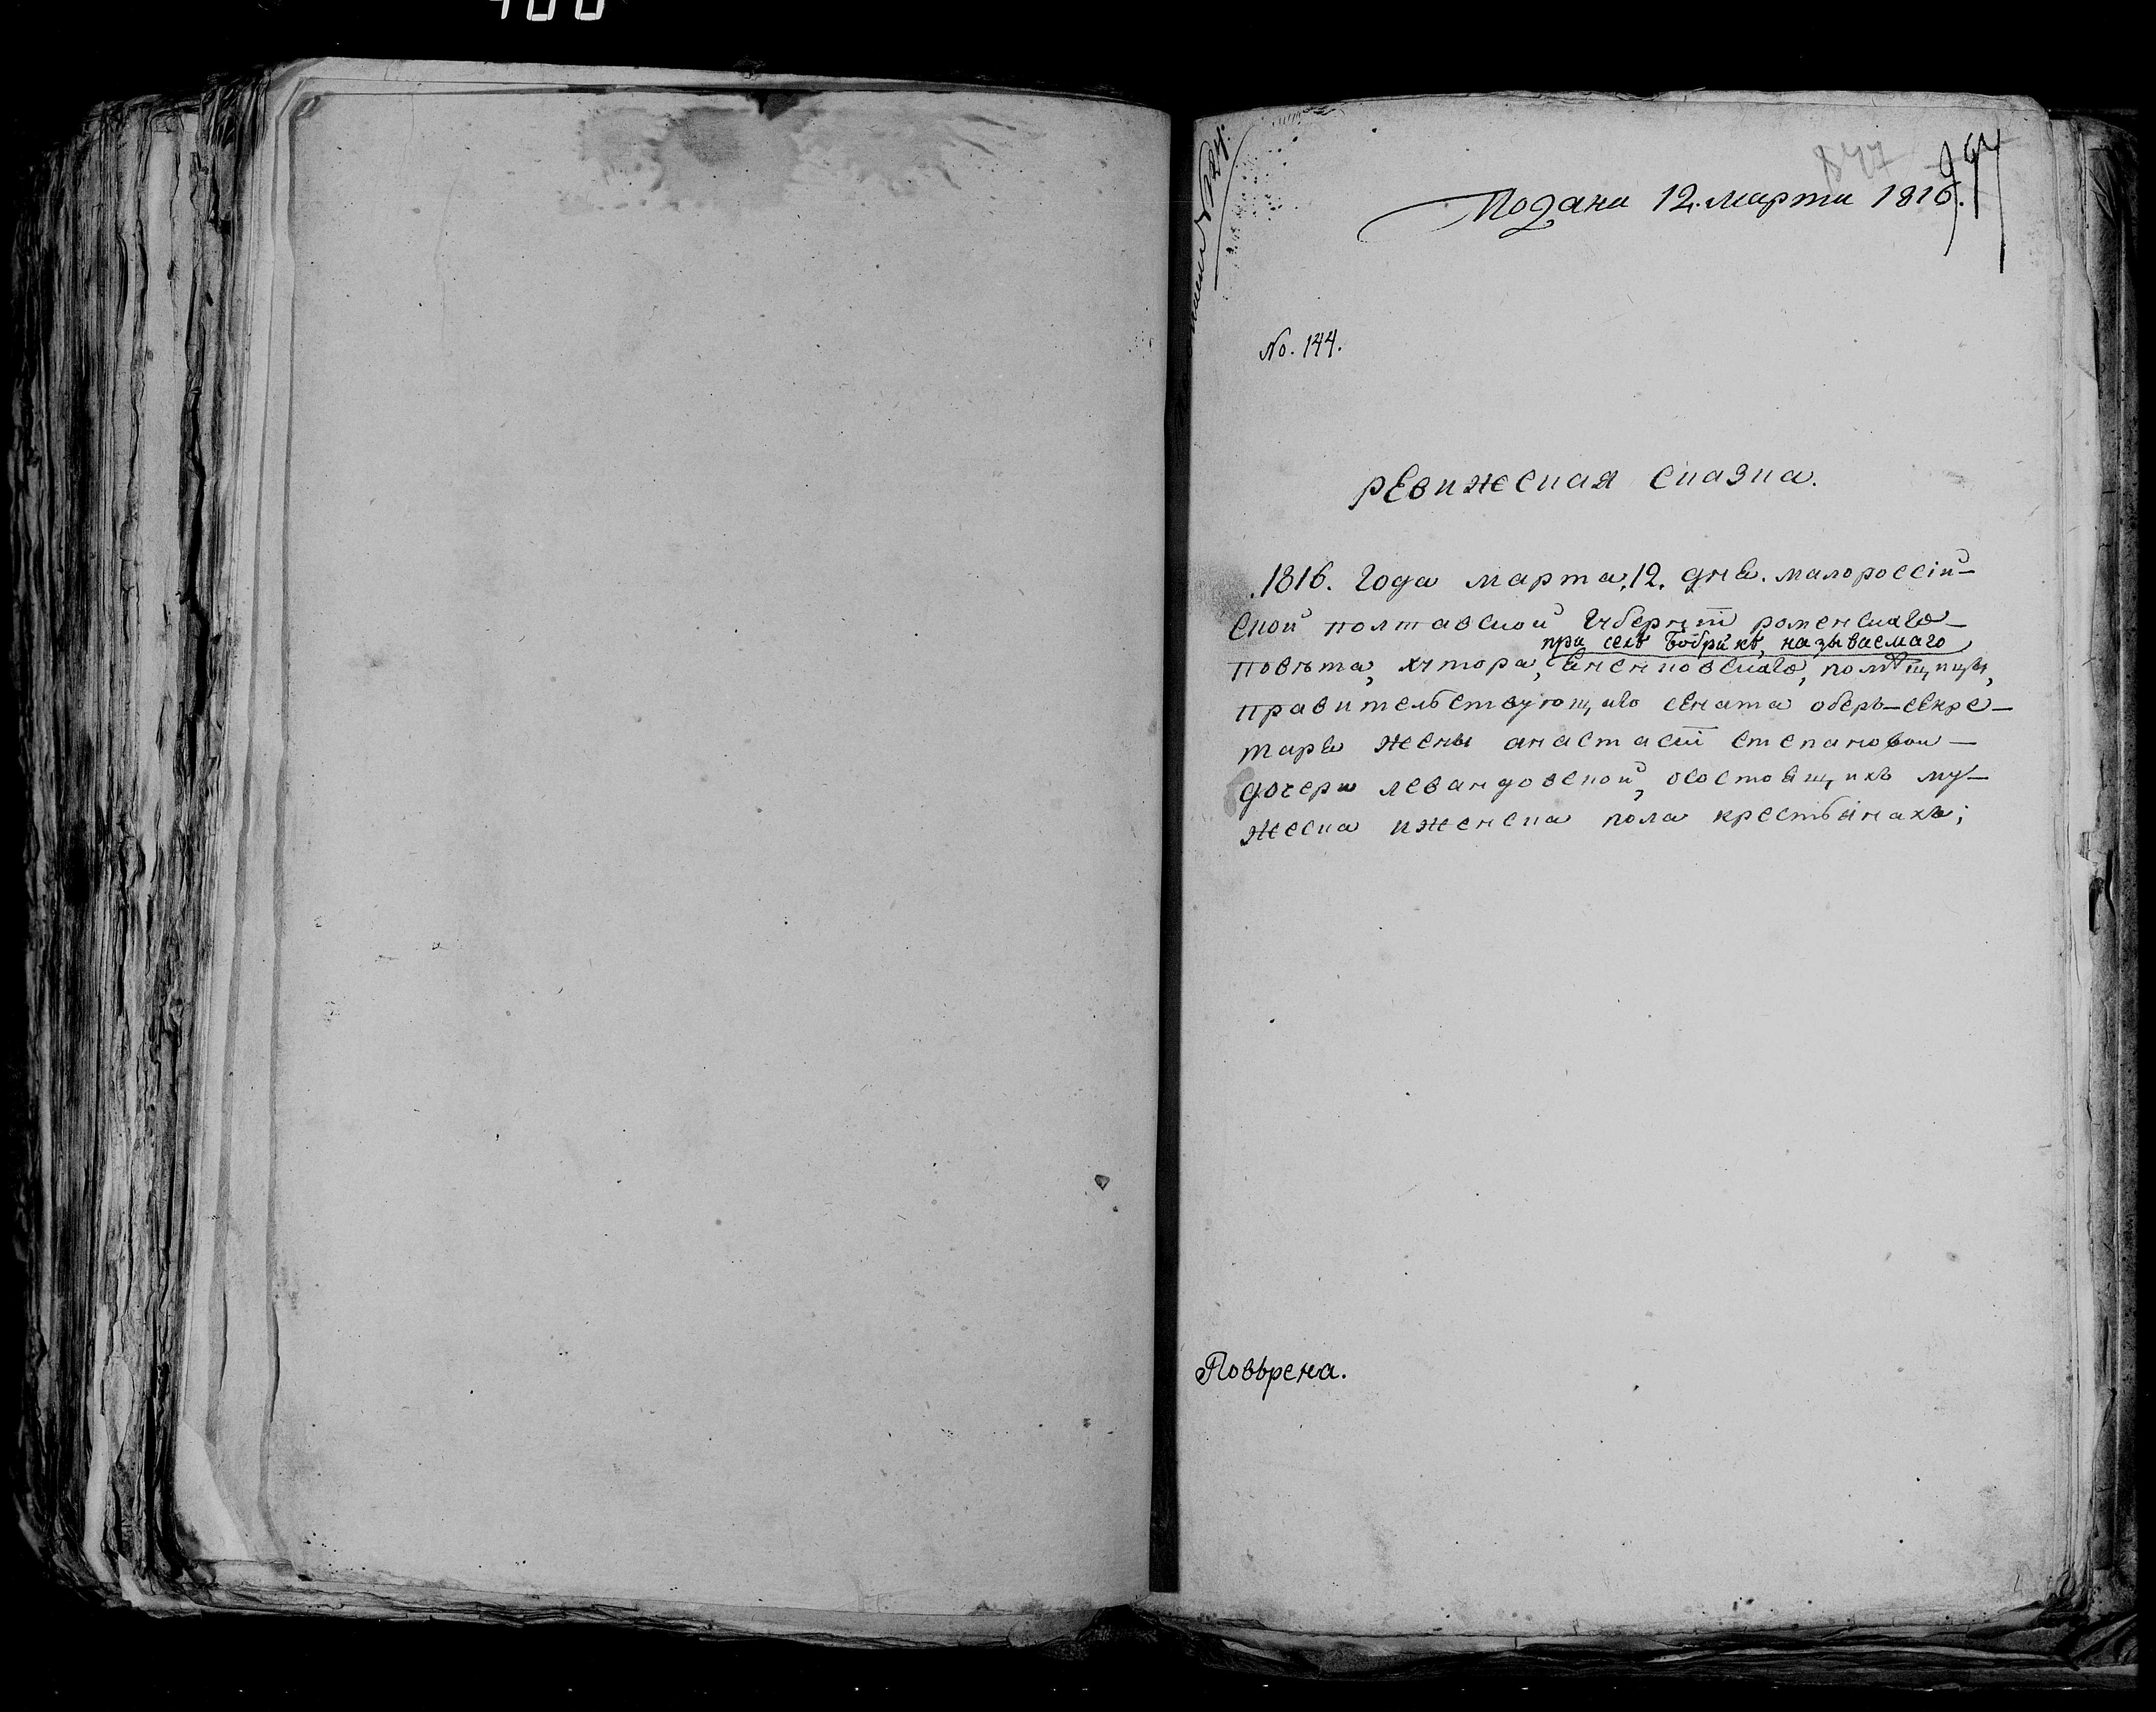 Подана 12. марта 1816.
No. 144.
ревижская сказка.
1816. года марта, 12. дня. малороссій-
ской полтавской губерніи роменскаго-
при селѣ Бобрикѣ, называемаго
повѣта, хутора, аненковскаго, помѣщицы,
правительствующаго сената оберъ-секре-
таря жены анастасіи степановой-
дочери левандовской, осостоящихъ му-
жеска иженска пола крестьянахъ;
Повѣрена.